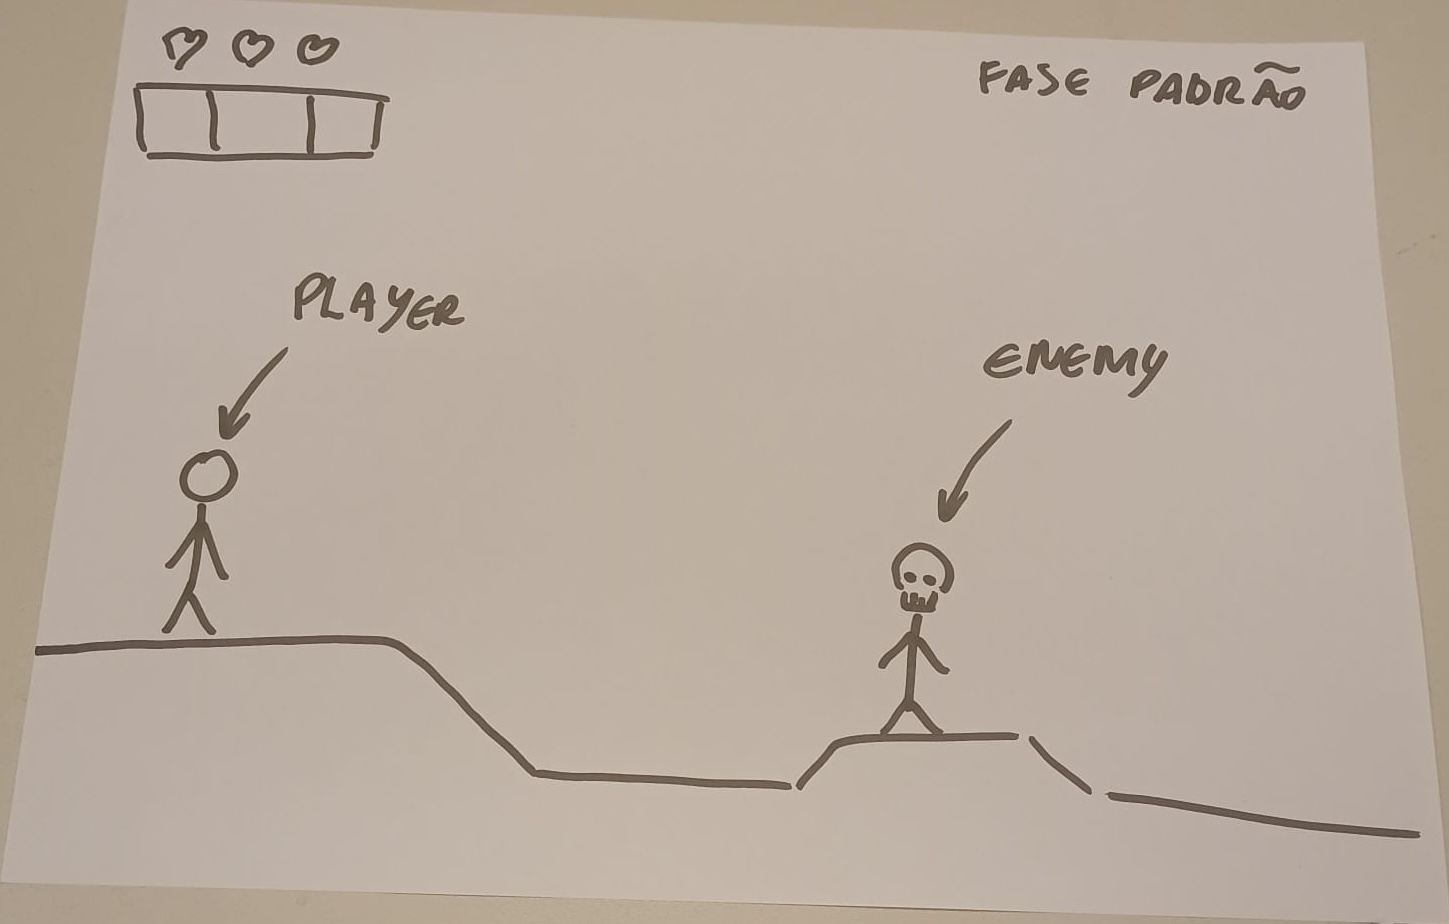 FASE PADRÃO
PLAYER
ENEMY